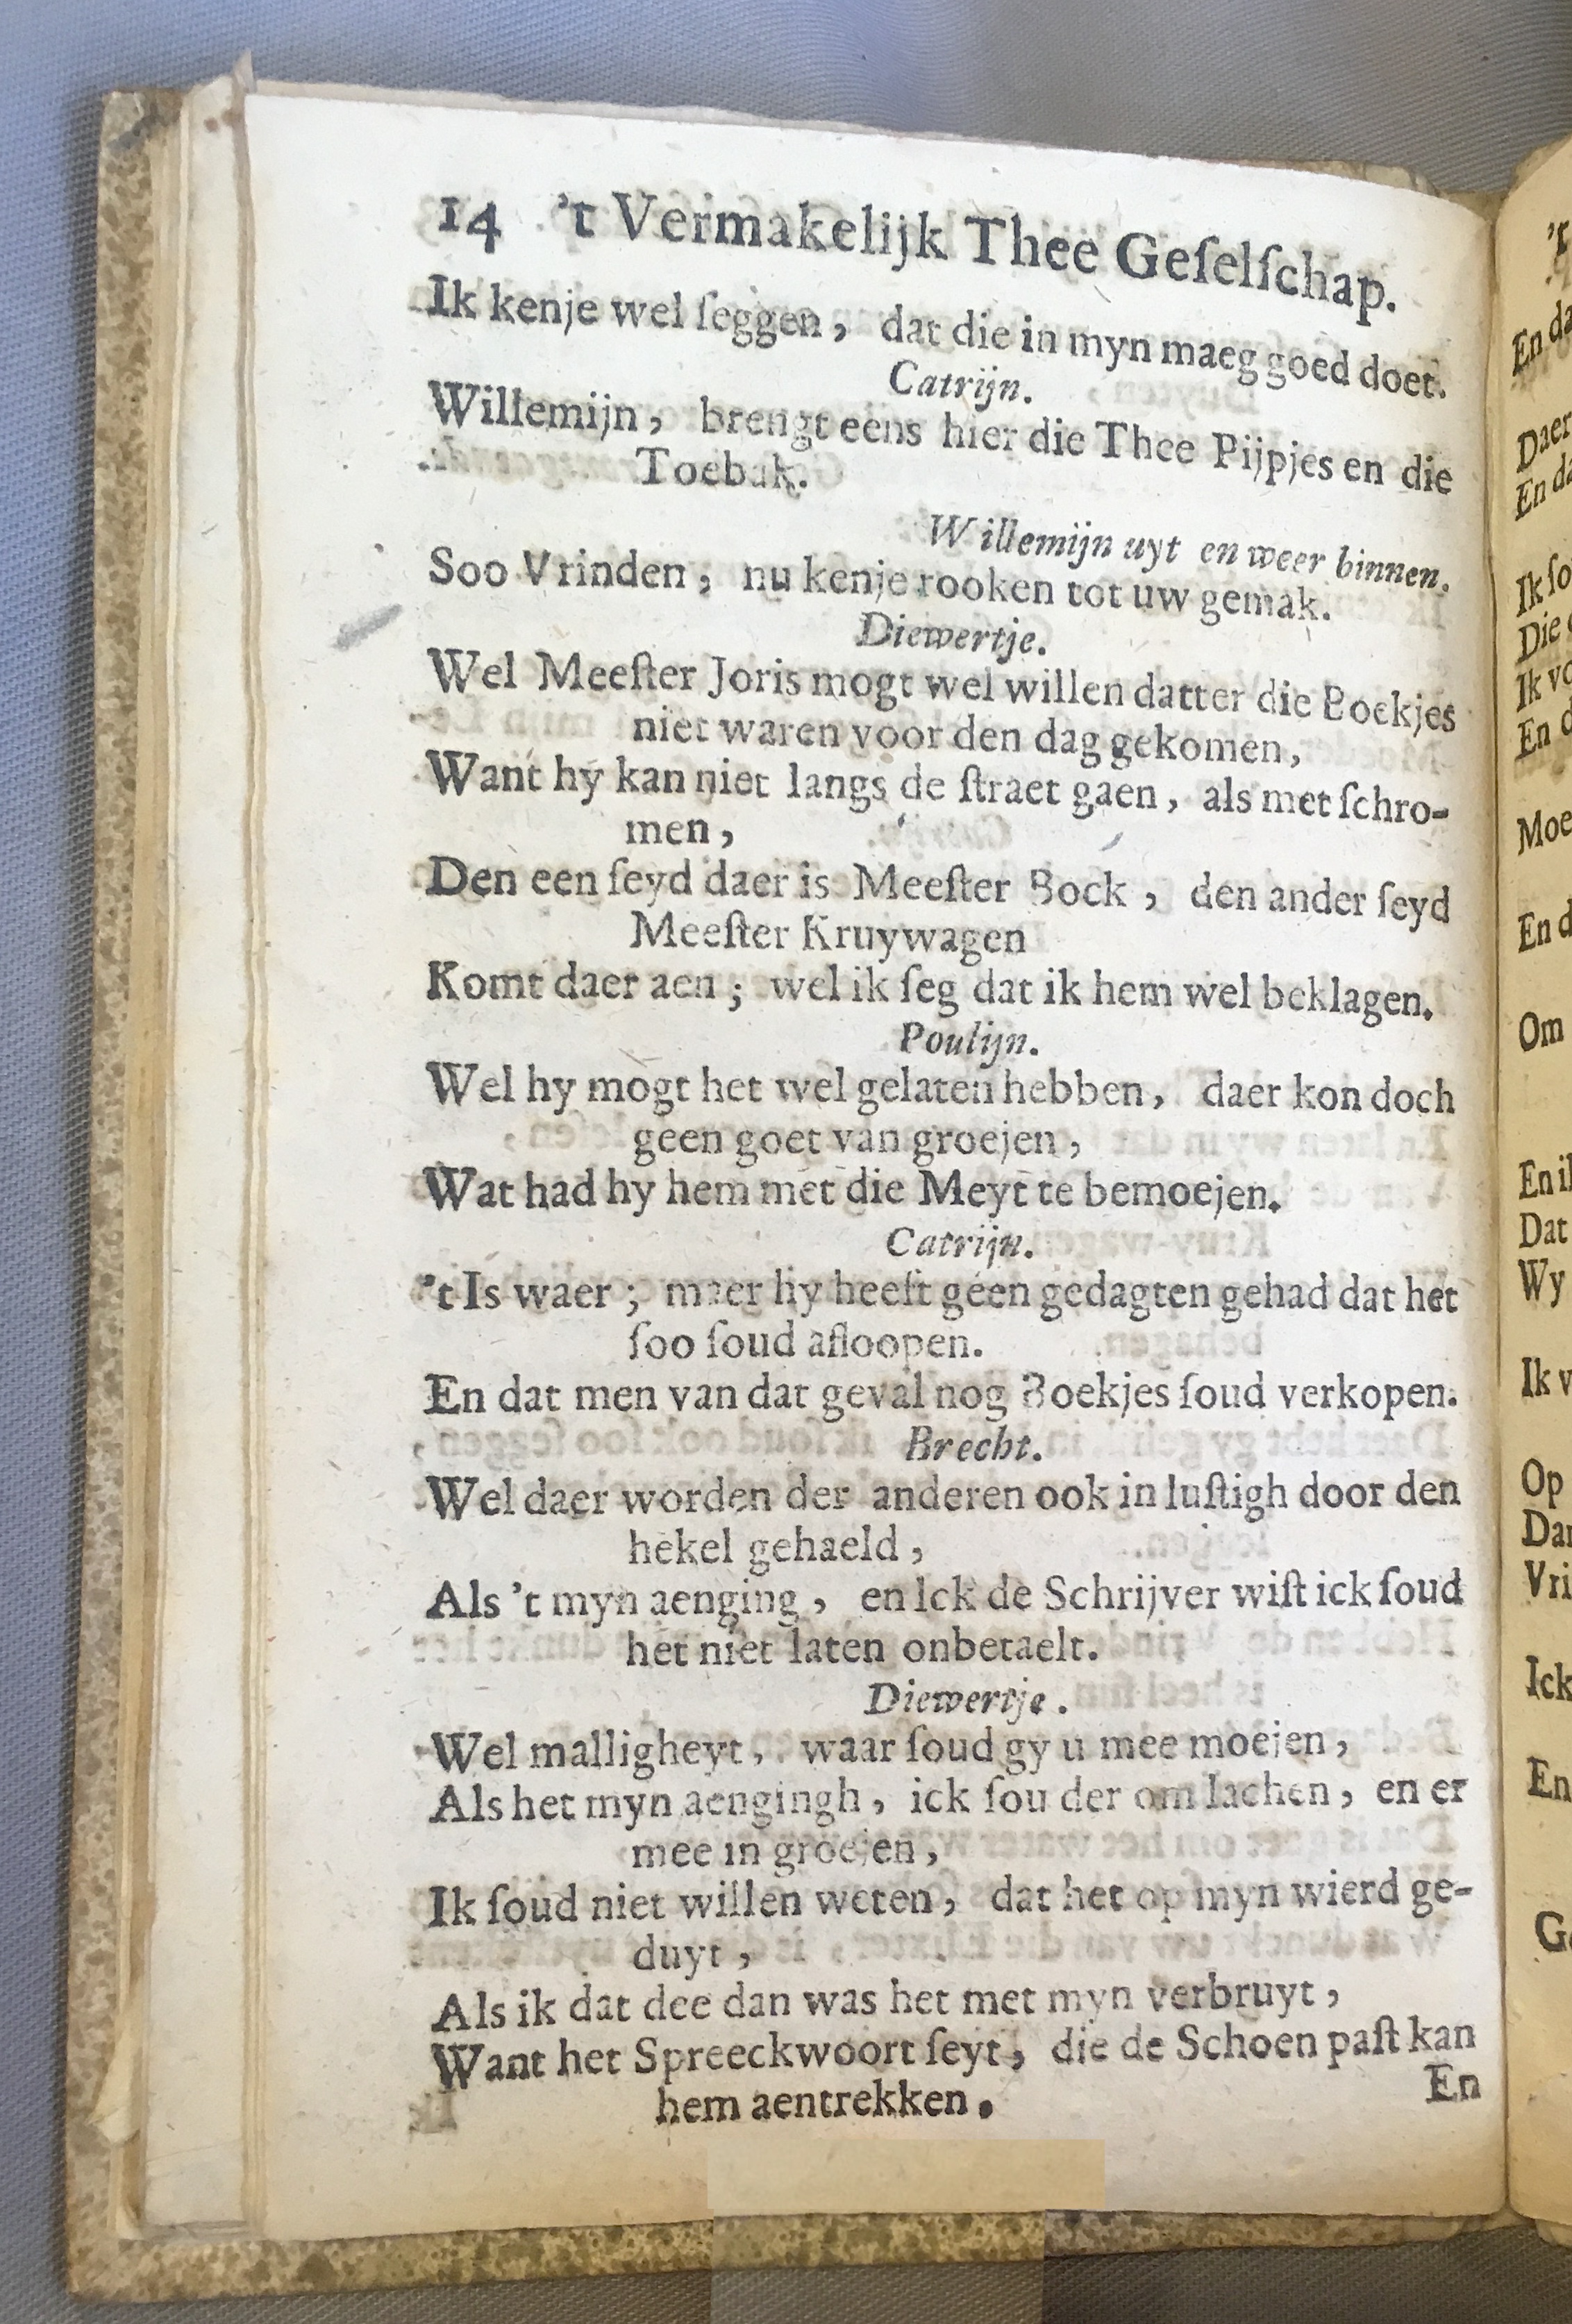 14 't Vermakelijk Thee Geſelſchap.
Ik kenje wel ſeggen, dat die in myn maeg goed doet.
Catrijn.
Willemijn, brengt eens hier die Thee Pijpjes en die
Toebak.
Willemijn uyt en weer binnen.
Soo Vrinden, nu kenje rooken tot uw gemak.
Diewertje.
Wel Meeſter Joris mogt wel willen datter die Boekjes
niet waren voor den dag gekomen,
Want hy kan niet langs de ſtraet gaen, als met ſchro-
men,
Den een ſeyd daer is Meeſter Bock, den ander ſeyd
Meeſter Kruywagen
Komt daer aen; wel ik ſeg dat ik hem wel beklagen.
Poulijn.
Wel hy mogt het wel gelaten hebben, daer kon doch
geen goet van groejen,
Wat had hy hem met die Meyt te bemoejen.
Catrijn.
't Is waer; maer hy heeft geen gedagten gehad dat het
ſoo ſoud afloopen.
En dat men van dat geval nog Boekjes ſoud verkopen.
Brecht.
Wel daer worden der anderen ook in luſtigh door den
hekel gehaeld,
Als 't myn aenging, en Ick de Schrijver wiſt ick ſoud
het niet laten onbetaelt.
Diewertje.
Wel malligheyt, waar ſoud gy u mee moejen,
Als het myn aengingh, ick ſou der om lachen, en er
mee in groejen,
Ik ſoud niet willen weten, dat het op myn wierd ge-
duyt,
Als ik dat dee dan was het met myn verbruyt,
Want het Spreeckwoort ſeyt, die de Schoen paſt kan
hem aentrekken.
En
't
En da
Daer
En da
Ik ſo
Die
Ik vo
En d
Moe
En d
Om
En ik
Dat
Wy
Ik v
Op
Dan
Vri
Ick
En